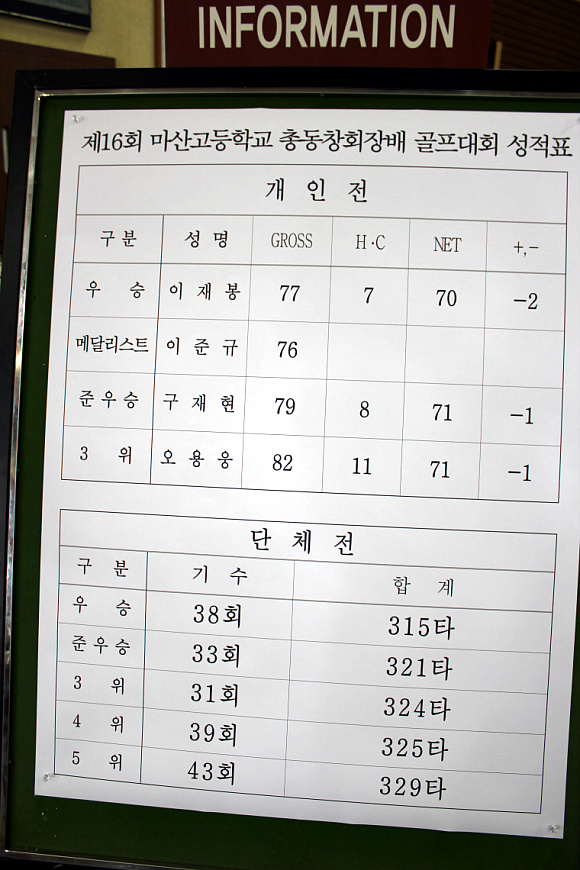 INFORMATION
제16회 마산고등학교 총동창회장배 골프대회 성적표
개인전
구분 성명 GROSS H·C NET +,-
우승 이재봉 77 7 70 -2
메달리스트 이준규 76
준우승 구재현 79 8 71 -1
3위 오용웅 82 11 71 -1
단체전
구분 기수 합계
우승 38회 315타
준우승 33회 321타
3위 31회 324타
4위 39회 325타
5위 43회 329타